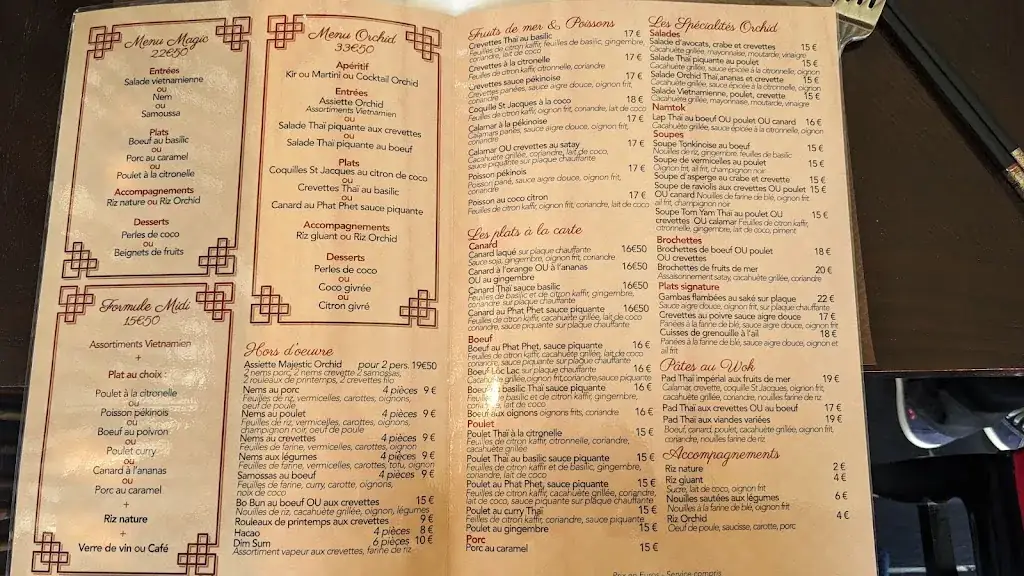 Menu Magic
22€50
Entrées
Salade vietnamienne
ou
Nem
ou
Samoussa
Plats
Boeuf au basilic
ou
Porc au caramel
ou
Poulet à la citronelle
Accompagnements
Riz nature ou Riz Orchid
Desserts
Perles de coco
ou
Beignets de fruits
Formule Midi
15€50
Assortiments Vietnamien
+
Plat au choix :
Poulet à la citronelle
ou
Poisson pékinois
ou
Boeuf au poivron
ou
Poulet curry
ou
Canard à l'ananas
ou
Porc au caramel
+
Riz nature
+
Verre de vin ou Café
Menu Orchid
33€50
Apéritif
Kir ou Martini ou Cocktail Orchid
Entrées
Assiette Orchid
Assortiments Vietnamien
ou
Salade Thaï piquante aux crevettes
ou
Salade Thaï piquante au boeuf
Plats
Coquilles St Jacques au citron de coco
ou
Crevettes Thaï au basilic
ou
Canard au Phat Phet sauce piquante
Accompagnements
Riz gluant ou Riz Orchid
Desserts
Perles de coco
ou
Coco givrée
ou
Citron givré
Hors d'oeuvre
Assiette Majestic Orchid pour 2 pers. 19€50
2 nems porc, 2 nems crevette 2 samosas,
2 rouleaux de printemps, 2 crevettes filo
Nems au porc 4 pièces 9 €
Feuilles de riz, vermicelles, carottes, oignons,
oeuf de poule
Nems au poulet 4 pièces 9 €
Feuilles de riz, vermicelles, carottes, oignons,
champignon noir, oeuf de poule
Nems au crevettes 4 pièces 9 €
Feuilles de farine, vermicelles, carottes, oignon
Nems aux légumes 4 pièces 9 €
Feuilles de farine, vermicelles, carottes, tofu, oignon
Samossas au boeuf 4 pièces 9 €
Feuilles de farine, curry, carotte, oignons,
noix de coco
Bo Bun au boeuf OU aux crevettes 15 €
Nouilles de riz, cacahuète grillée, oignon, légumes
Rouleaux de printemps aux crevettes 9 €
Hacao 4 pièces 8 €
Dim Sum 6 pièces 10 €
Assortiment vapeur aux crevettes, farine de riz
Fruits de mer & Poissons
Crevettes Thaï au basilic 17 €
Feuilles de citron kaffir, feuilles de basilic, gingembre,
coriandre, lait de coco
Crevettes à la citronelle 17 €
Feuilles de citron kaffir, citronnelle, coriandre
Crevettes sauce pékinoise 17 €
Crevettes panées, sauce aigre douce, oignon frit,
coriandre
Coquille St Jacques à la coco 18 €
Feuilles de citron kaffir, oignon frit, coriandre, lait de coco
Calamar à la pékinoise 17 €
Calamars panés, sauce aigre douce, oignon frit,
coriandre
Calamar OU crevettes au satay 17 €
Cacahuète grillée, coriandre, lait de coco,
sauce piquante sur plaque chauffante
Poisson pékinois 17 €
Poisson pané, sauce aigre douce, oignon frit,
coriandre
Poisson au coco citron 17 €
Feuilles de citron kaffir, oignon frit, coriandre, lait de coco
Les plats à la carte
Canard
Canard laqué sur plaque chauffante 16€50
Sauce soja, gingembre, oignon frit, coriandre
Canard à l'orange OU à l'ananas 16€50
OU au gingembre
Canard Thaï sauce basilic 16€50
Feuilles de basilic et de citron kaffir, gingembre,
coriandre sur plaque chauffante
Canard au Phat Phet sauce piquante 16€50
Feuilles de citron kaffir, cacahuète grillée, lait de coco,
coriandre, sauce piquante sur plaque chauffante
Boeuf
Boeuf au Phat Phet, sauce piquante 16 €
Feuilles de citron kaffir, cacahuète grillée, lait de coco
coriandre, sauce piquante sur plaque chauffante
Boeuf Lôc Lac sur plaque chauffante 16 €
Cacahuète grillée, oignon frit, coriandre, sauce piquante
Boeuf au basilic Thaï sauce piquante 16 €
Feuilles de basilic et de citron kaffir, gingembre,
coriandre, lait de coco
Boeuf aux oignons oignons frits, coriandre 16 €
Poulet
Poulet Thaï à la citronelle 15 €
Feuilles de citron kaffir, citronnelle, coriandre,
cacahuète grillée
Poulet Thaï au basilic sauce piquante 15 €
Feuilles de citron kaffir et de basilic, gingembre,
coriandre, lait de coco
Poulet au Phat Phet, sauce piquante 15 €
Feuilles de citron kaffir, cacahuète grillée, coriandre,
lait de coco, sauce piquante sur plaque chauffante
Poulet au curry Thaï 15 €
Feilles de citron kaffir, coriandre, sauce piquante
Poulet au gingembre 15 €
Porc
Porc au caramel 15 €
Prix en Euros - Service compris
Les Spécialités Orchid
Salades
Salade d'avocats, crabe et crevettes 15 €
Cacahuète grillée, mayonnaise, moutarde, vinaigre
Salade Thaï piquante au poulet 15 €
Cacahuète grillée, sauce épicée à la citronnelle, oignon
Salade Orchid Thaï, ananas et crevette 15 €
Cacahuète grillée, sauce épicée à la citronnelle, oignon
Salade Vietnamienne, poulet, crevette 15 €
Cacahuète grillée, mayonnaise, moutarde, vinaigre
Namtok
Lap Thaï au boeuf OU poulet OU canard 16 €
Cacahuète grillée, sauce épicée à la citronnelle, oignon
Soupes
Soupe Tonkinoise au boeuf 15 €
Nouilles de riz, gingembre, feuilles de basilic
Soupe de vermicelles au poulet 15 €
Oignon frit, ail frit, champignon noir
Soupe d'asperge au crabe et crevette 15 €
Soupe de raviolis aux crevettes OU poulet 15 €
OU canard Nouilles de farine de blé, oignon frit
ail frit, champignon noir
Soupe Tom Yam Thaï au poulet OU 15 €
crevettes OU calamar Feuilles de citron kaffir,
citronnelle, gingembre, lait de coco, piment
Brochettes
Brochettes de boeuf OU poulet 18 €
OU crevettes
Brochettes de fruits de mer 20 €
Assaisonnement satay, cacahuète grillée, coriandre
Plats signature
Gambas flambées au saké sur plaque 22 €
Sauce aigre douce, oignon frit, sur plaque chauffante
Crevettes au poivre sauce aigre douce 17 €
Panées à la farine de blé, sauce aigre douce, oignon frit
Cuisses de grenouille à l'ail 18 €
Panées à la farine de blé, sauce aigre douce, oignon et
ail frit
Pâtes au Wok
Pad Thaï impérial aux fruits de mer 19 €
Calamar, crevette, coquille St Jacques, oignon frit,
cacahuète grillée, coriandre, nouilles farine de riz
Pad Thaï aux crevettes OU au boeuf 17 €
Pad Thaï aux viandes variées 19 €
Boeuf, canard, poulet, cacahuète grillée, oignon frit,
coriandre, nouilles farine de riz
Accompagnements
Riz nature 2 €
Riz gluant 4 €
Sucre, lait de coco, oignon frit
Nouilles sautées aux légumes 6 €
Nouilles à la farine de blé, oignon frit
Riz Orchid 4 €
Oeuf de poule, saucisse, carotte, porc